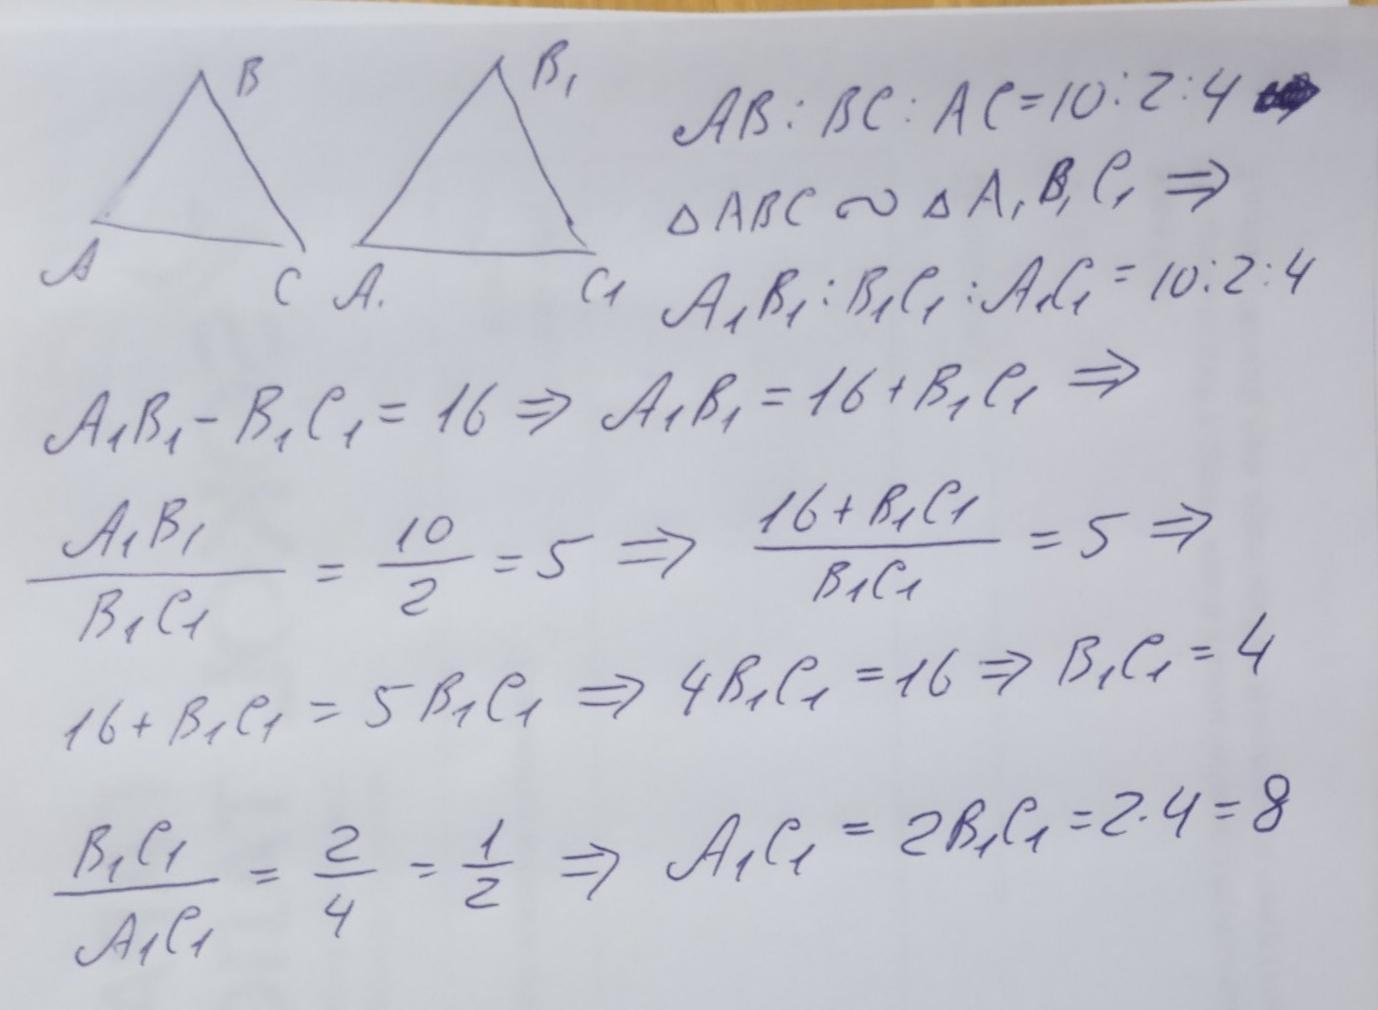 B
B₁
A
C
A.
C1
AB : BC : AC = 10 : 2 : 4
△ABC ∾ △A₁B₁C₁ ⇒
A₁B₁ : B₁C₁ : A₁C₁ = 10 : 2 : 4
A₁B₁ - B₁C₁ = 16 ⇒ A₁B₁ = 16 + B₁C₁ ⇒
A₁B₁ / B₁C₁ = 10 / 2 = 5 ⇒ 16 + B₁C₁ / B₁C₁ = 5 ⇒
16 + B₁C₁ = 5 B₁C₁ ⇒ 4B₁C₁ = 16 ⇒ B₁C₁ = 4
B₁C₁ / A₁C₁ = 2 / 4 = 1 / 2 ⇒ A₁C₁ = 2B₁C₁ = 2 · 4 = 8